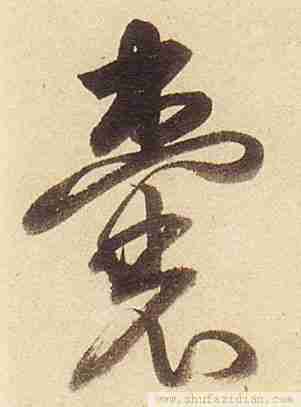 囊
www.shufazidian.com